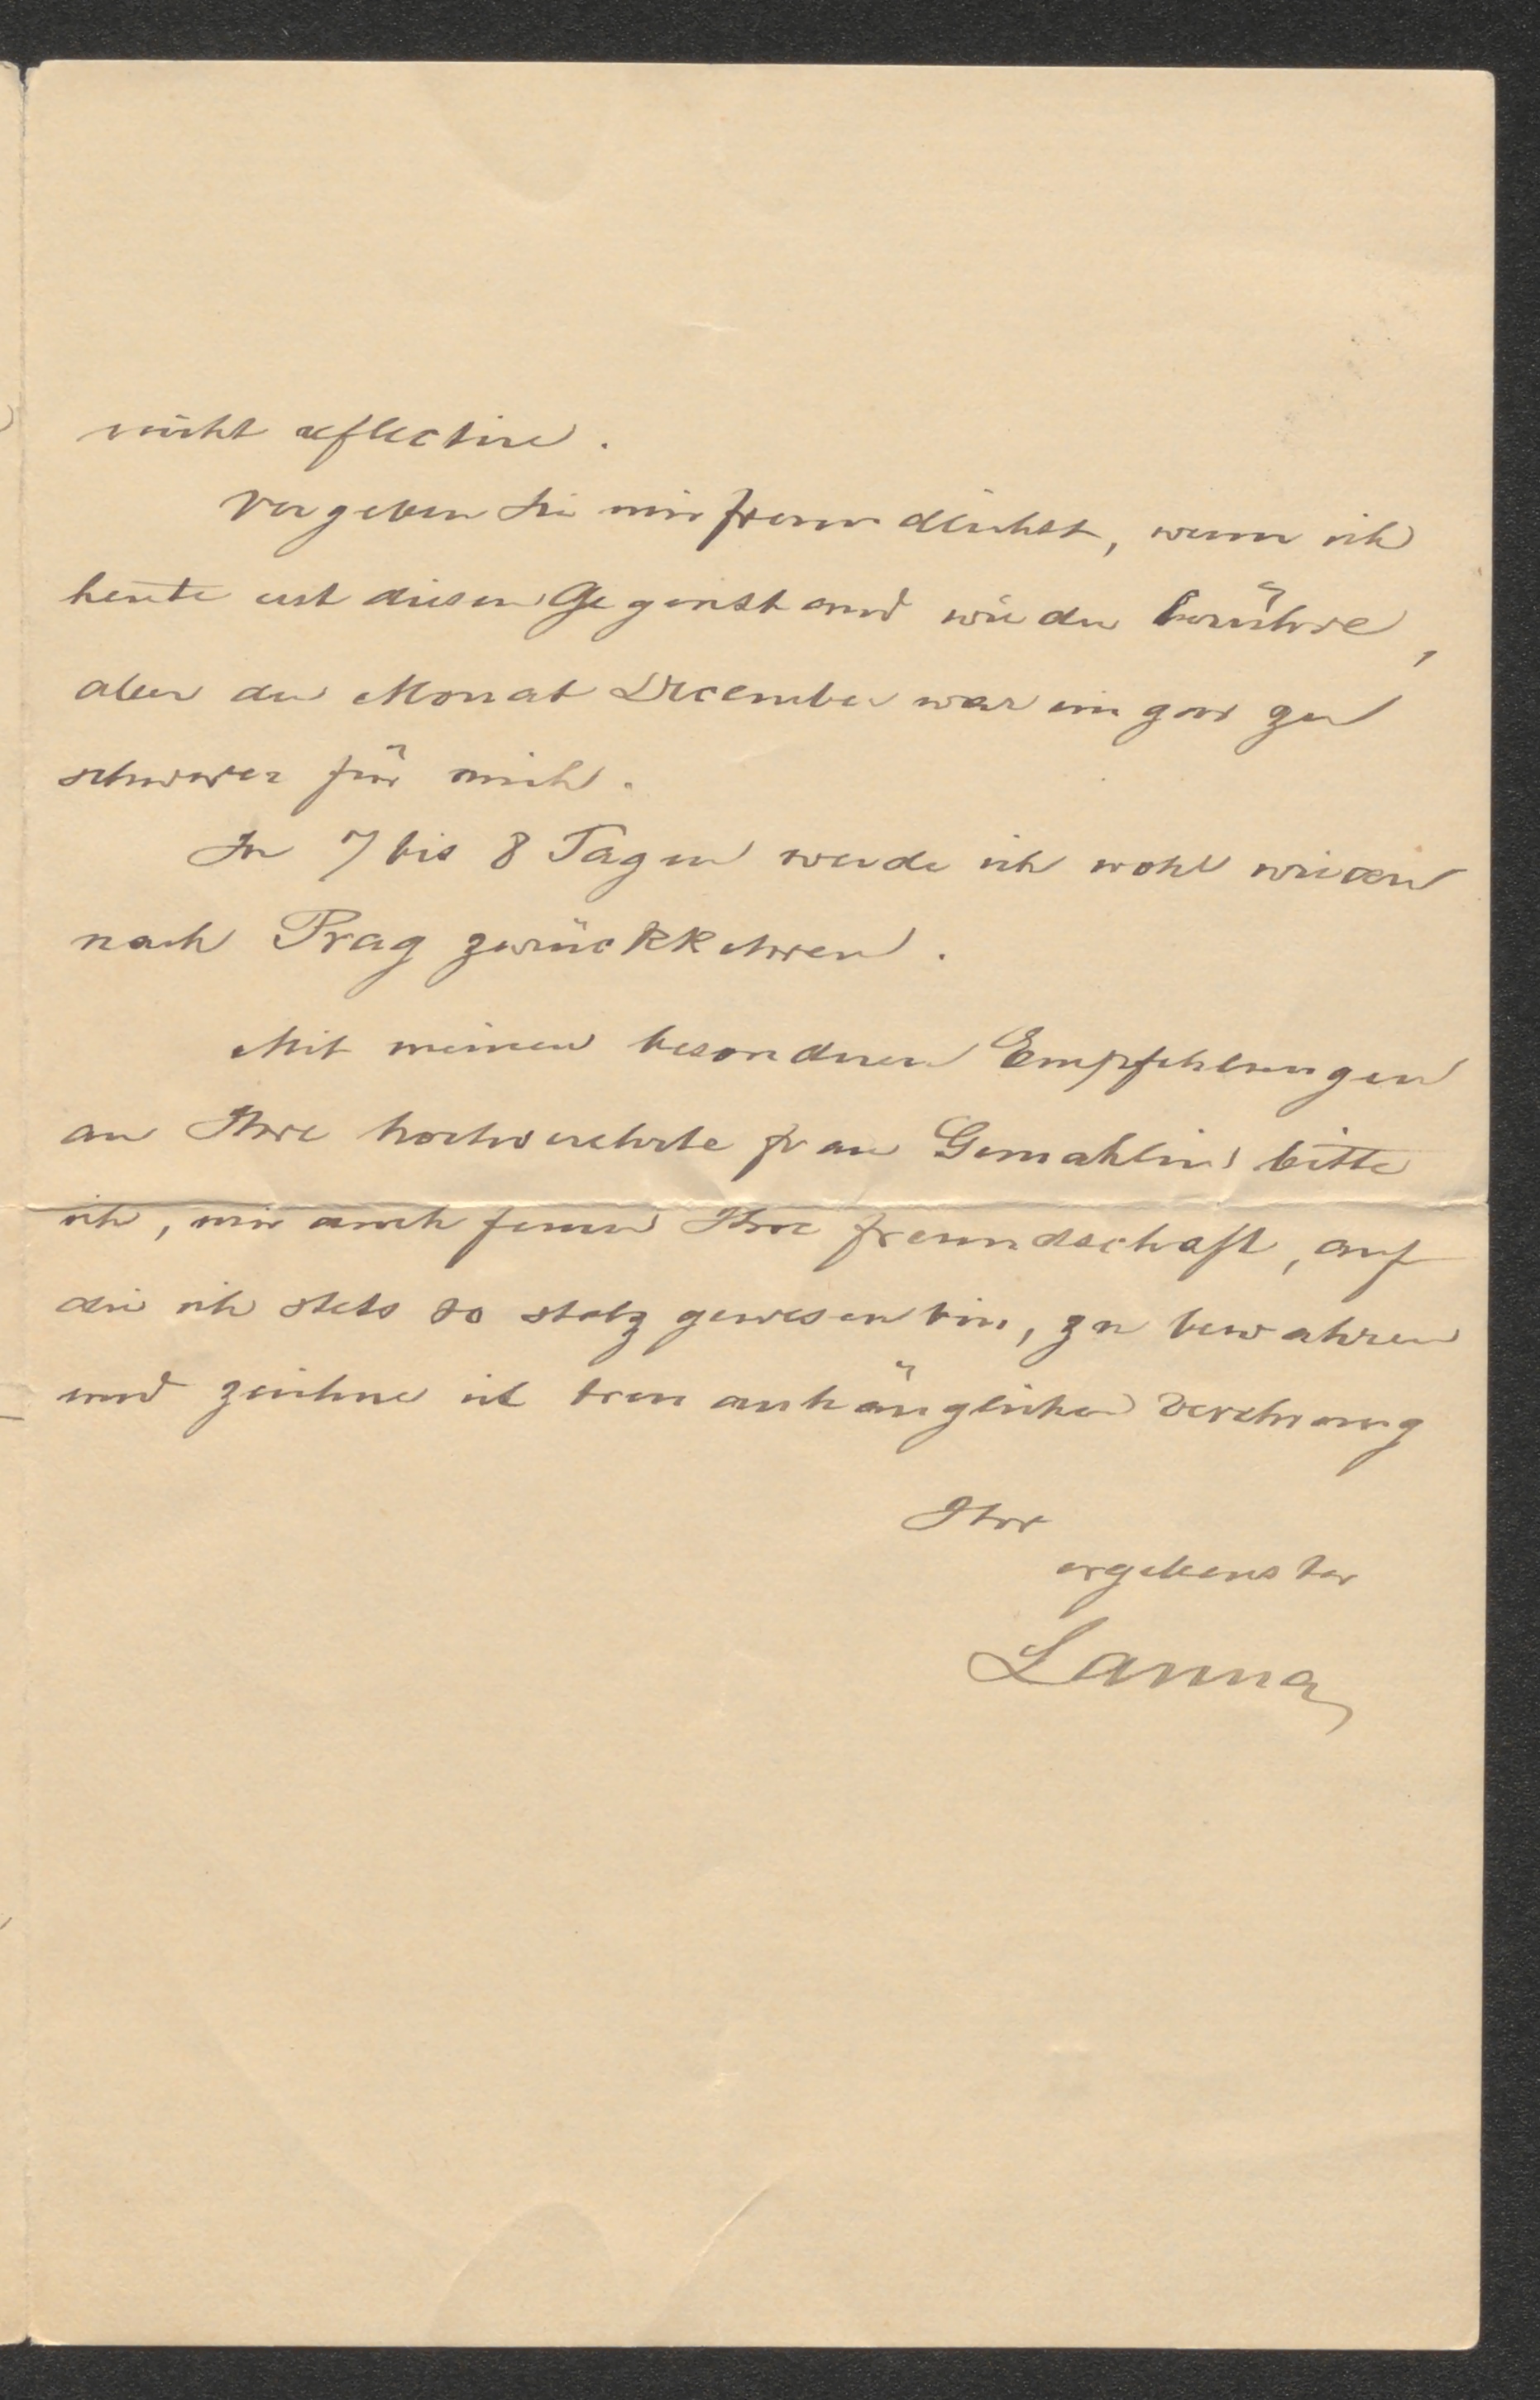 nicht reflectire.
Vergeben Sie mir freundlichst, wenn ich
heute erst diesen Gegenstand wieder berühre,
aber der Monat December war ein gar zu
schwerer für mich.
In 7 bis 8 Tagen werde ich wohl wieder
nach Prag zurückkehren.
Mit meinen besonderen Empfehlungen
an Ihre hochverehrte Frau Gemahlin bitte
ich, mir auch ferner Ihre Freundschaft, auf
die ich stets so stolz gewesen bin, zu bewahren
und zeichne in treu anhänglicher Verehrung
Ihr
ergebenster
Lanna